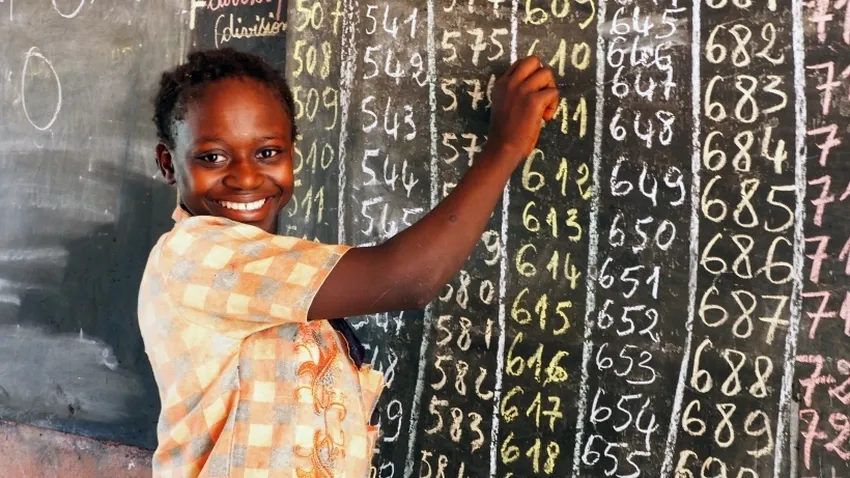 (division
507
508
509
510
511
541
542
543
544
545
575
580
581
582
583
584
609
610
11
612
613
614
615
616
617
618
645
646
647
648
649
650
651
652
653
654
655
682
683
684
685
686
687
688
689
690